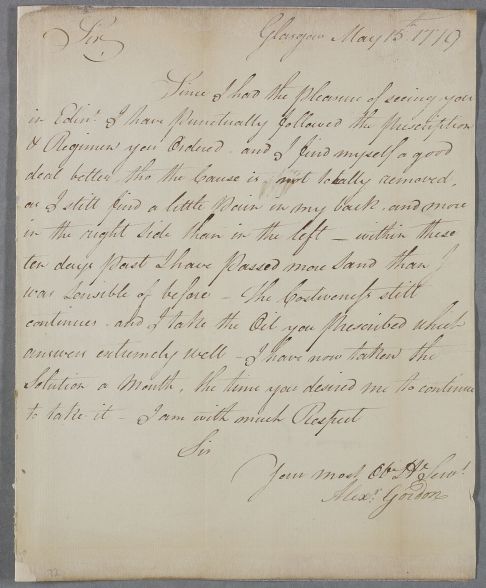 Sir,
Glasgow May 15th 1779
Since I had the pleasure of seeing you
in Edinr. I have punctually followed the prescription
& Regimen you Ordered - and I find myself a good
deal better tho the Cause is not totally removed,
as I still find a little Pain in my back - and more
in the right side than in the left - within these
ten days past I have passed more Sand than I
was sensible of before - the Costiveness still
continues - and I take the Oil you prescribed which
answers extremely well - I have now taken the
Solution a Month, the time you desired me to continue
to take it - I am with much Respect
Sir
Your most Obt. Hle Servt.
Alexr. Gordon